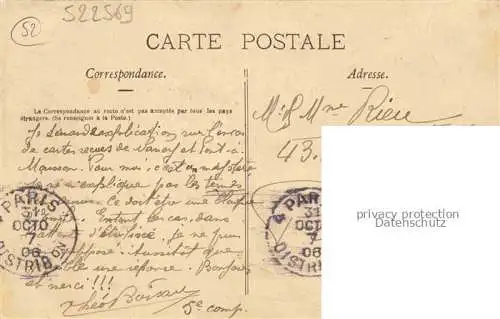 522569
52
CARTE POSTALE
Correspondance.
Adresse.
La Correspondance au recto n'est pas acceptée par tous les pays
étrangers. (Se renseigner à la Poste.)
M. & Mme Rieu
43.
Je demande explication sur l'envoi
de cartes reçues de Nancy et Pont-à-
Mousson. Pour moi, c'est un
explique pas les
Ce doit être une
En tout les cas, dans
Je ne puis
Aussitôt que
une réponse. Bonjour
et merci !!!
Théo
5e comp.
PARIS
31
OCTO
7
06
DISTRIBON
4 PARIS
31
OCTO
7
06
DISTRIB
privacy protection
Datenschutz